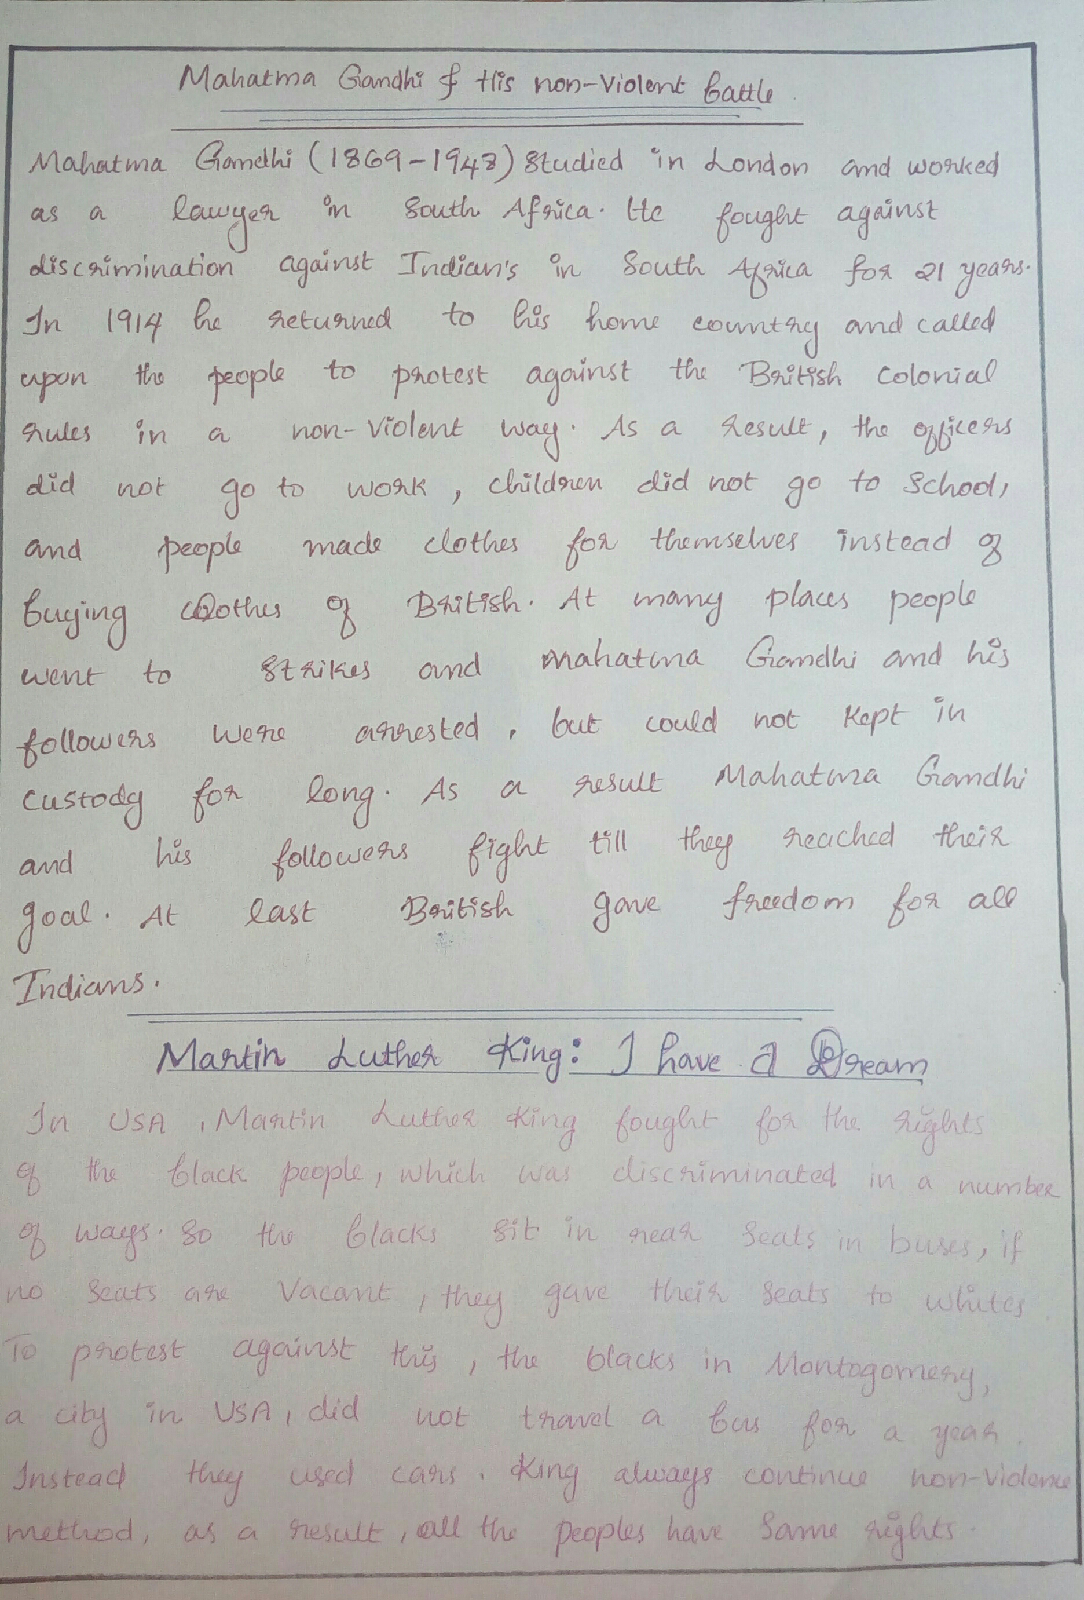 Mahatma Gandhi & His non-Violent battle.
Mahatma Gandhi (1869-1948) Studied in London and worked
as a lawyer in South Africa. He fought against
discrimination against Indian's in South Africa for 21 years.
In 1914 he returned to his home country and called
upon the people to protest against the British Colonial
rules in a non-Violent way. As a result, the officers
did not go to work, children did not go to School,
and people made clothes for themselves instead of
buying clothes of British. At many places people
went to Strikes and Mahatma Gandhi and his
followers were arrested, but could not kept in
custody for long. As a result Mahatma Gandhi
and his followers fight till they reached their
goal. At last British gave freedom for all
Indians.
Martin Luther King: I have a Dream
In USA, Martin Luther King fought for the rights
of the black people, which was discriminated in a number
of ways. So the blacks sit in rear Seats in buses, if
no Seats are Vacant, they gave their Seats to whites
To protest against this, the blacks in Montogomery,
a city in USA, did not travel a bus for a year.
Instead they used cars. King always continue non-violence
method, as a result, all the peoples have Same rights.